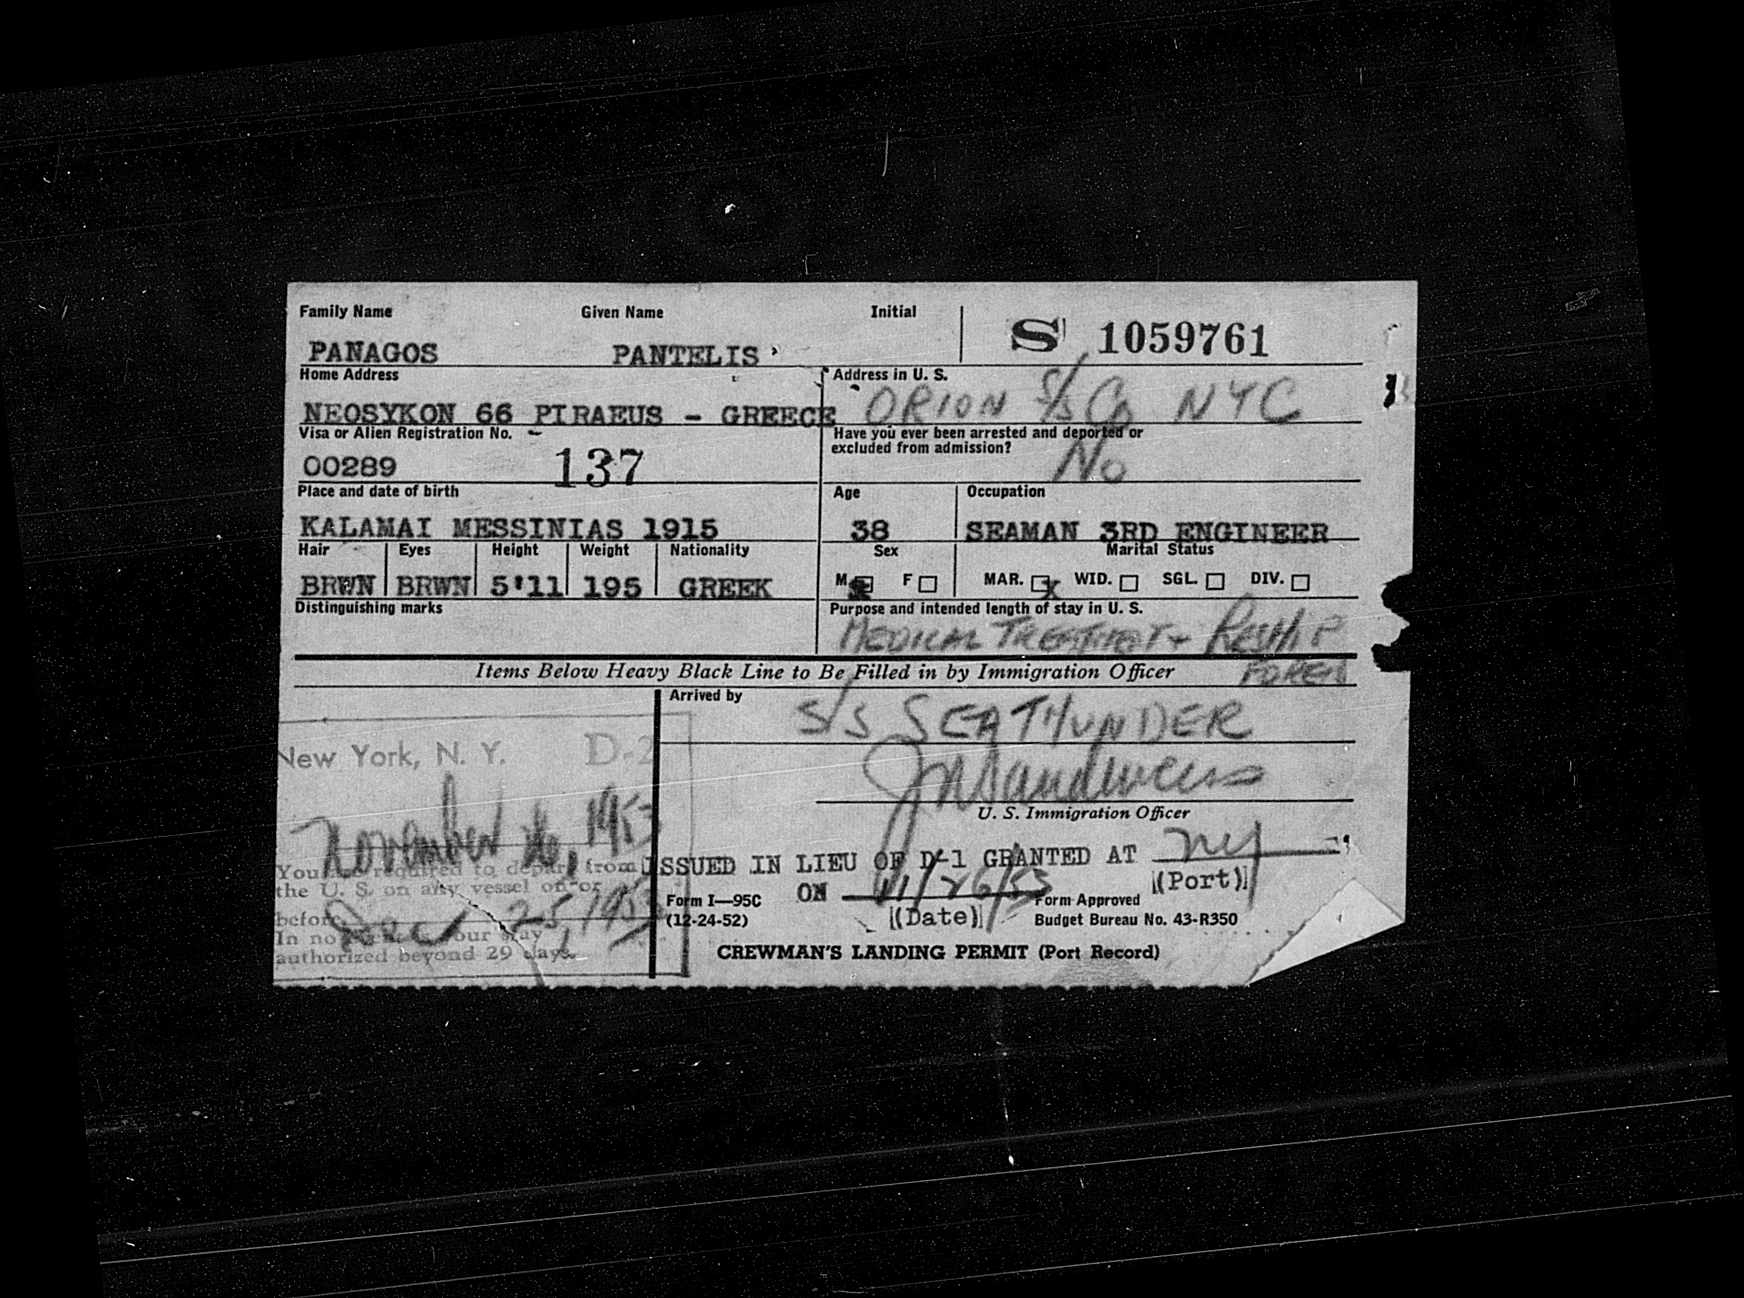 Family Name Given Name Initial
S 1059761
PANAGOS PANTELIS
Home Address
Address in U. S.
NEOSYKON 66 PIRAEUS - GREECE
ORION S/S Co NYC
Visa or Alien Registration No.
Have you ever been arrested and deported or
excluded from admission?
00289 137
No
Place and date of birth
Age Occupation
KALAMAI MESSINIAS 1915
38 SEAMAN 3RD ENGINEER
Hair Eyes Height Weight Nationality
Sex Marital Status
BRWN BRWN 5'11 195 GREEK
M. F MAR. X WID. SGL. DIV.
Distinguishing marks
Purpose and intended length of stay in U. S.
MEDICAL TREATMENT + RESHIP
FOREN
Items Below Heavy Black Line to Be Filled in by Immigration Officer
Arrived by
S/S SEATHUNDER
New York, N. Y. D-2
U. S. Immigration Officer
November 26, 1953
You are required to depart from
the U. S. on any vessel on or
before Dec 25, 1953
In no event is your stay
authorized beyond 29 days.
ISSUED IN LIEU OF D-1 GRANTED AT NY
(Port)
ON 11/26/53
(Date)
Form I—95C
(12-24-52)
Form Approved
Budget Bureau No. 43-R350
CREWMAN'S LANDING PERMIT (Port Record)